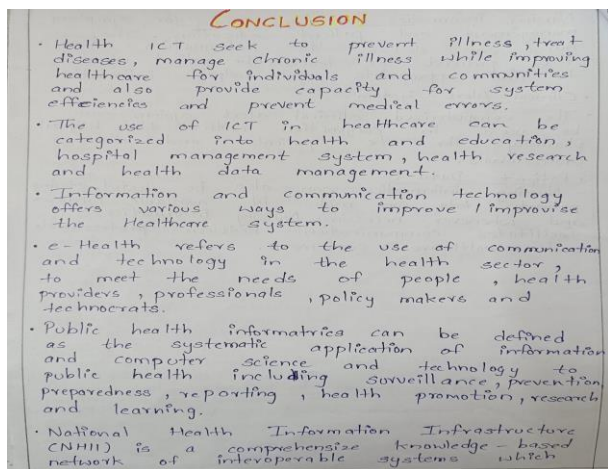 CONCLUSION
· Health ICT seek to prevent illness, treat
diseases, manage chronic illness while improving
healthcare for individuals and communities
and also provide capacity for system
efficiencies and prevent medical errors.
· The use of ICT in healthcare can be
categorized into health and education,
hospital management system, health research
and health data management.
· Information and communication technology
offers various ways to improve / improvise
the Healthcare system.
· e-Health refers to the use of communication
and technology in the health sector,
to meet the needs of people, health
providers, professionals, policy makers and
technocrats.
· Public health informatrics can be defined
as the systematic application of information
and computer science and technology to
public health including surveillance, prevention,
preparedness, reporting, health promotion, research
and learning.
· National Health Information Infrastructure
(NHII) is a comprehensize knowledge-based
network of interoperable systems which